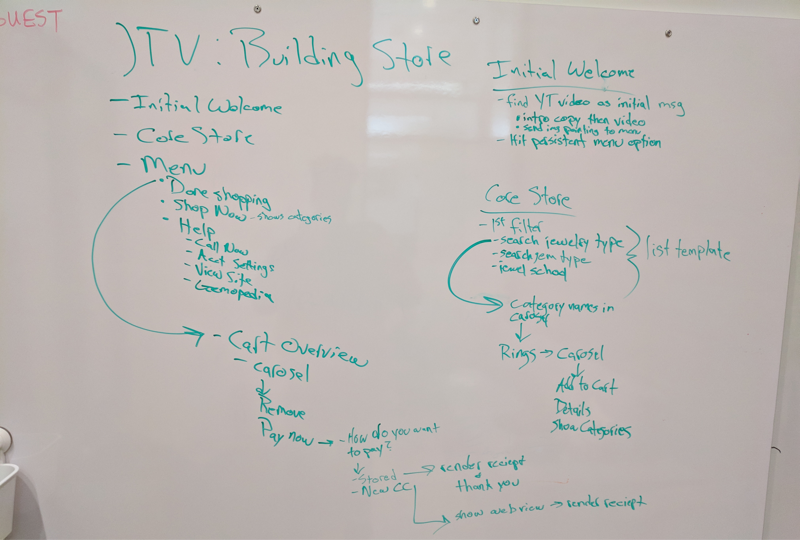 GUEST
JTV: Building Store
- Initial Welcome
- Core Store
- Menu
• Done shopping
• Shop Now - shows categories
- Help
- Call Now
- Acct Settings
- View Site
- Gemopedia
- Cart Overview
- Carosel
Remove
Pay now → - How do you want
to pay?
- Stored → render reciept
+ thank you
- New CC
show webview → render reciept
Initial Welcome
- find YT video as initial msg
• intro copy then video
• send img pointing to menu
- Hit persistent menu option
Core Store
- 1st filter
- search jewelry type
- search gem type
- jewel school
list template
Category names in
carosel
Rings → Carosel
Add to Cart
Details
Show Categories